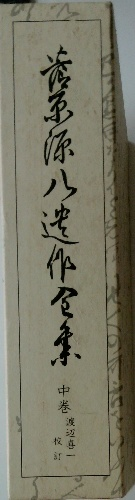 葭原源八遺作全集
中巻
渡辺喜一
校訂